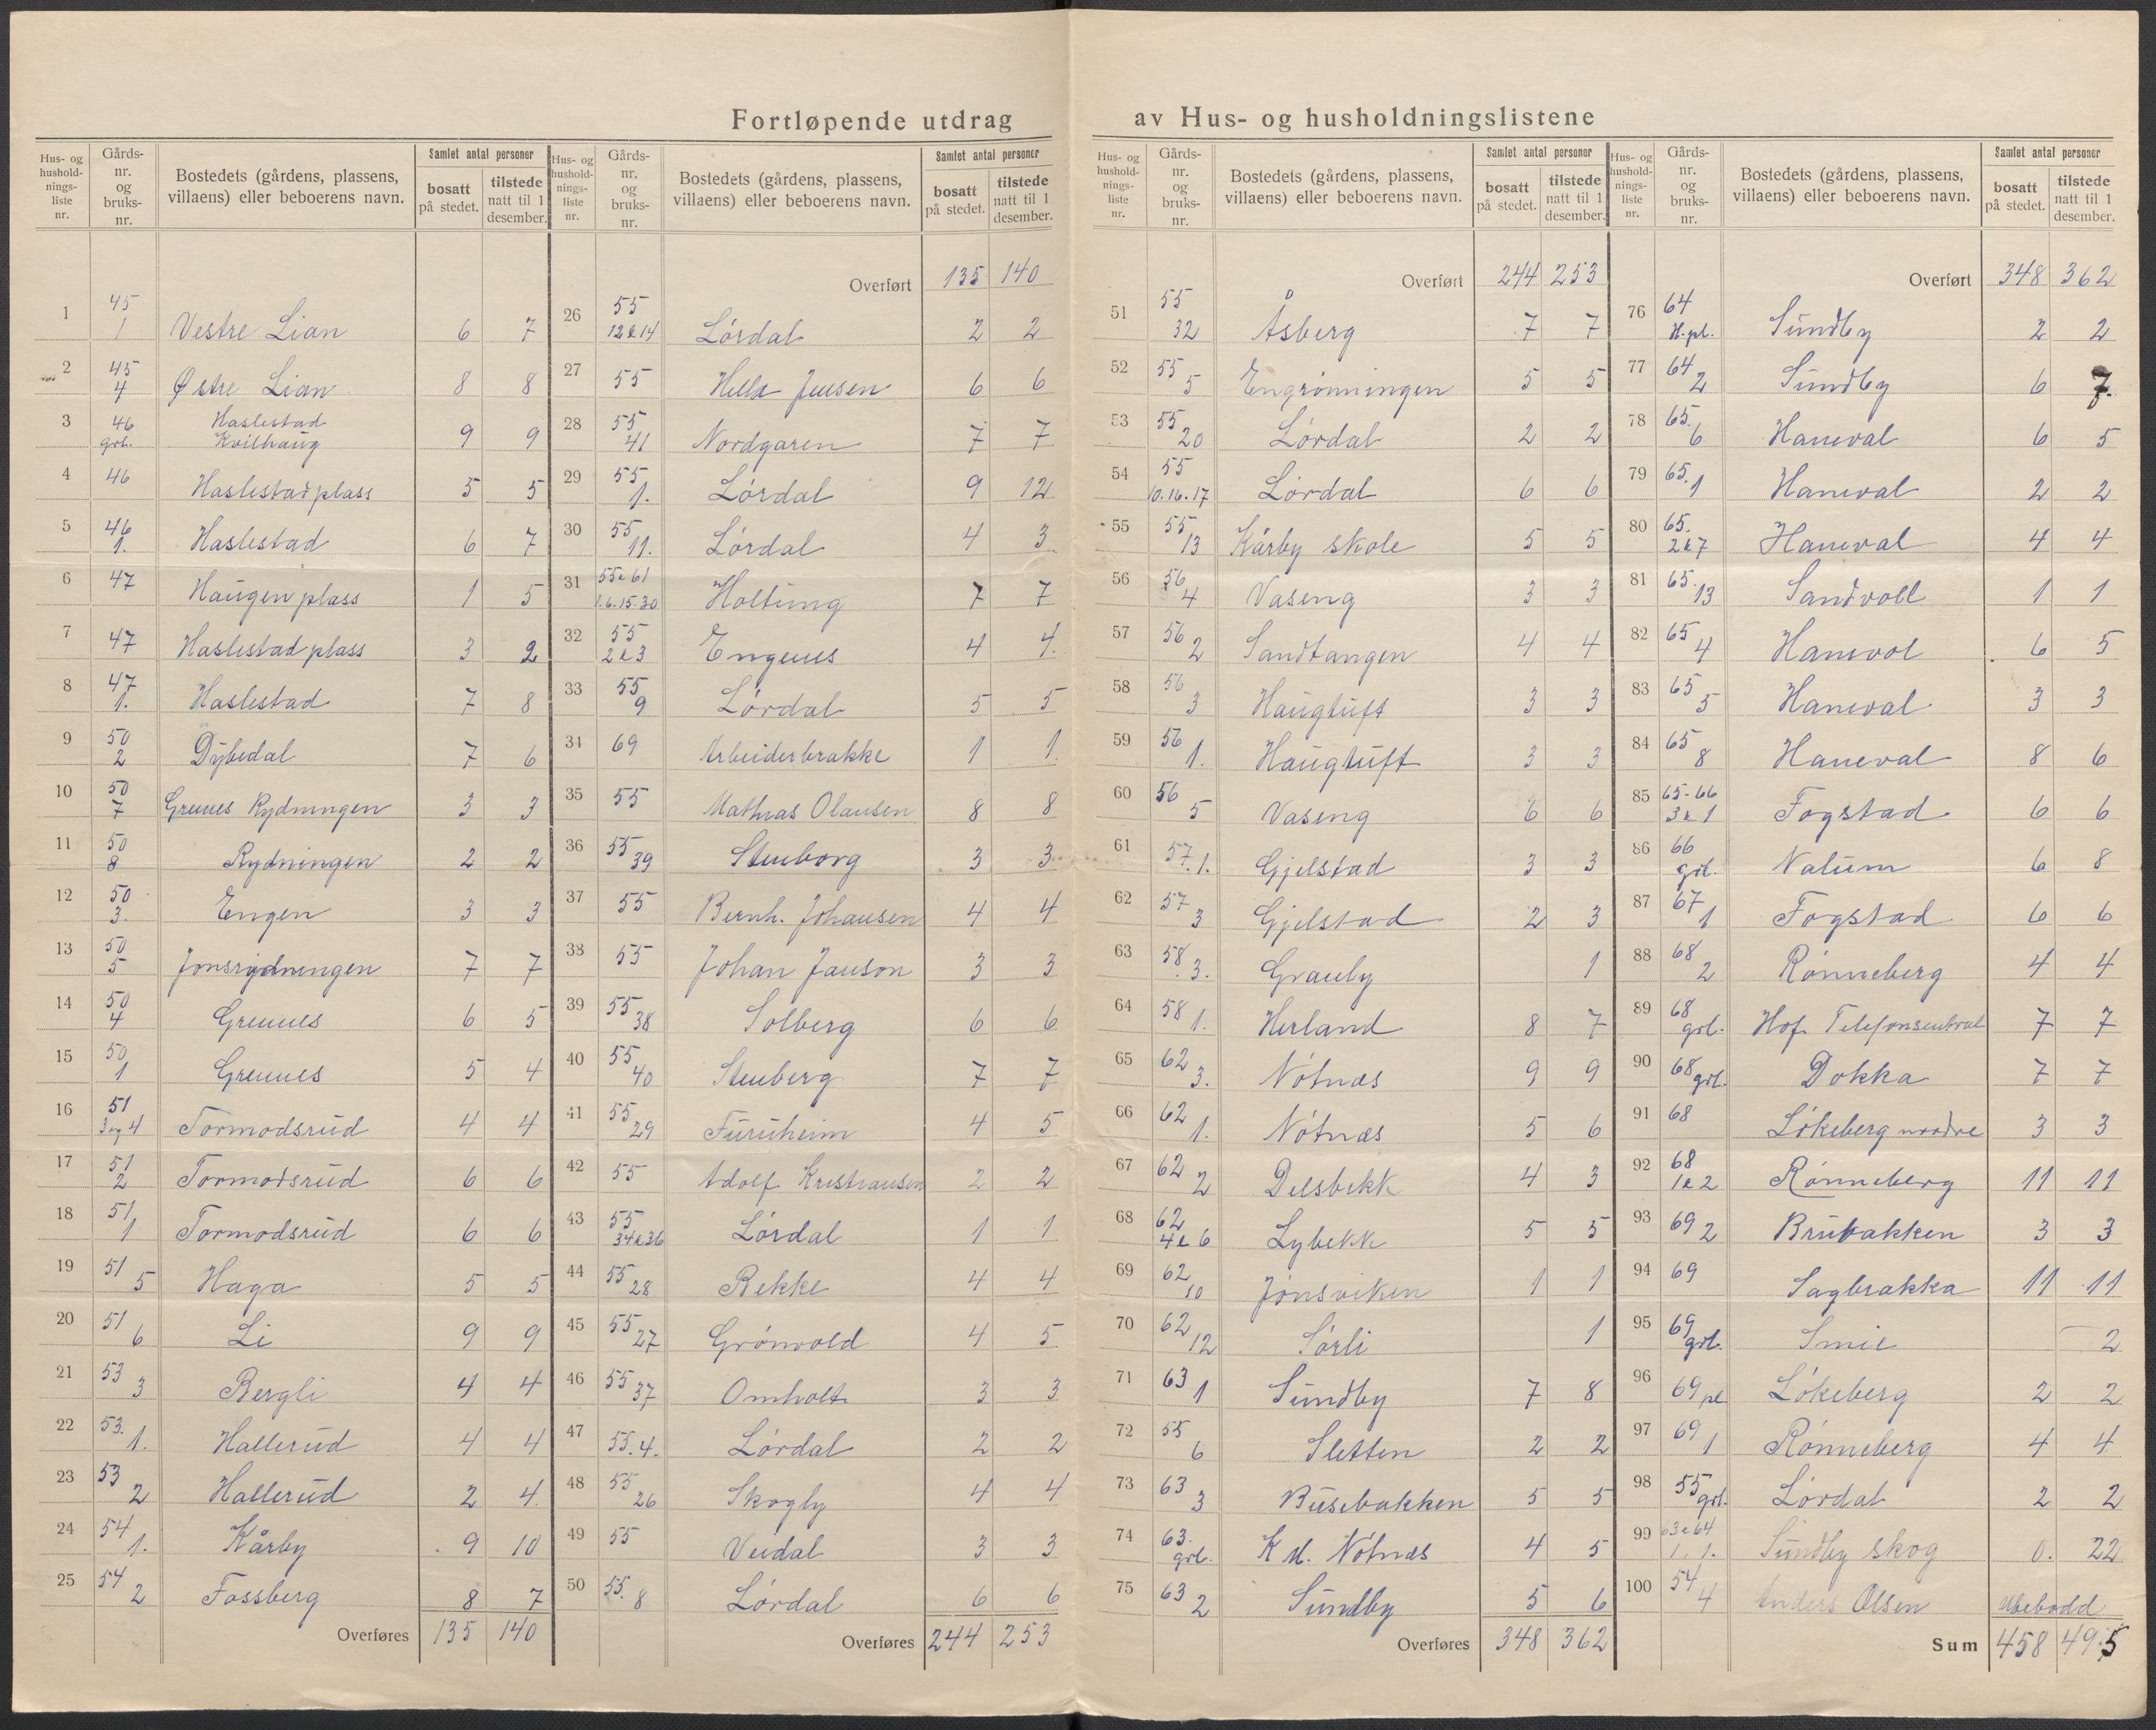 Fortløpende utdrag av Hus- og husholdningslistene
Hus- og husholdningsliste nr.
Gårds-nr. og bruks-nr.
Bostedets (gårdens, plassens, villaens) eller beboerens navn.
Samlet antal personer
bosatt på stedet.
tilstede natt til 1 desember.
1 45 1 Vestre Lian 6 7
2 45 4 Østre Lian 8 8
3 46 grl. Haslestad Kvilhaug 9 9
4 46 Haslestadplass 5 5
5 46 1. Haslestad 6 7
6 47 Haugen plass 1 5
7 47 Haslestad plass 3 2
8 47 1. Haslestad 7 8
9 50 2 Dybedal 7 6
10 50 7 Grennes Rydningen 3 3
11 50 8 Rydningen 2 2
12 50 3. Engen 3 3
13 50 5 Jonsrydningen 7 7
14 50 4 Grennes 6 5
15 50 1 Grennes 5 4
16 51 3 og 4 Tormodsrud 4 4
17 51 2 Tormodsrud 6 6
18 51 1 Tormodsrud 6 6
19 51 5 Haga 5 5
20 51 6 Li 9 9
21 53 3 Bergli 4 4
22 53. 1. Hallerud 4 4
23 53 2 Hallerud 2 4
24 54 1. Kårby 9 10
25 54 2 Fossberg 8 7
Overføres 135 140
Hus- og husholdningsliste nr.
Gårds-nr. og bruks-nr.
Bostedets (gårdens, plassens, villaens) eller beboerens navn.
Samlet antal personer
bosatt på stedet.
tilstede natt til 1 desember.
Overført 135 140
26 55 12&14 Lørdal 2 2
27 55 Helle Jensen 6 6
28 55 41 Nordgaren 7 7
29 55 1. Lørdal 9 12
30 55 11. Lørdal 4 3
31 55&61 1.6.15.30 Holtung 7 7
32 55 2&3 Engenes 4 4
33 55 9 Lørdal 5 5
34 69 Arbeiderbrakke 1 1
35 55 Mathias Olausen 8 8
36 55 39 Stenborg 3 3
37 55 Bernh. Johansen 4 4
38 55 Johan Janson 3 3
39 55 38 Solberg 6 6
40 55 40 Stenberg 7 7
41 55 29 Furuheim 4 5
42 55 Adolf Kristiansen 2 2
43 55 34&36 Lørdal 1 1
44 55 28 Bekke 4 4
45 55 27 Grønvold 4 5
46 55 37 Omholt 3 3
47 55. 4. Lørdal 2 2
48 55 26 Skogly 4 4
49 55 Veidal 3 3
50 55. 8 Lørdal 6 6
Overføres 244 253
Hus- og husholdningsliste nr.
Gårds-nr. og bruks-nr.
Bostedets (gårdens, plassens, villaens) eller beboerens navn.
Samlet antal personer
bosatt på stedet.
tilstede natt til 1 desember.
Overført 244 253
51 55 32 Åsberg 7 7
52 55 5 Engrønningen 5 5
53 55 20 Lørdal 2 2
54 55 10.16.17 Lørdal 6 6
55 55 13 Kårby skole 5 5
56 56 4 Vaseng 3 3
57 56 2 Sandtangen 4 4
58 56 3 Haugtuft 3 3
59 56 1. Haugtuft 3 3
60 56 5 Vaseng 6 6
61 57. 1. Gjelstad 3 3
62 57 3 Gjelstad 2 3
63 58 3. Granby 1
64 58 1. Herland 8 7
65 62 3. Nøtnæs 9 9
66 62 1. Nøtnæs 5 6
67 62 2 Delsbekk 4 3
68 62 4&6 Lybekk 5 5
69 62 10 Jønsviken 1 1
70 62 12 Sørli 1
71 63 1 Sundby 7 8
72 55 6 Sletten 2 2
73 63 3 Busebakken 5 5
74 63. grl. K M. Nøtnæs 4 5
75 63 2 Sundby 5 6
Overføres 348 362
Hus- og husholdningsliste nr.
Gårds-nr. og bruks-nr.
Bostedets (gårdens, plassens, villaens) eller beboerens navn.
Samlet antal personer
bosatt på stedet.
tilstede natt til 1 desember.
Overført 348 362
76 64 H.pl. Sundby 2 2
77 64 2 Sundby 6 7.
78 65. 6 Haneval 6 5
79 65. 1 Haneval 2 2
80 65. 2&7 Haneval 4 4
81 65. 13 Sandvoll 1 1
82 65 4 Hanevol 6 5
83 65 5 Haneval 3 3
84 65 8 Haneval 8 6
85 65-66 3&1 Fogstad 6 6
86 66 grl. Nalum 6 8
87 67 1 Fogstad 6 6
88 68 2 Rønneberg 4 4
89 68 grl. Hof Telefonsentral 7 7
90 68 grl. Dokka 7 7
91 68 Løkeberg nordre 3 3
92 68 1&2 Rønneberg 11 11
93 69 2 Brubakken 3 3
94 69 Sagbrakka 11 11
95 69 grl. Smie 2
96 69 pl Løkeberg 2 2
97 69 1 Rønneberg 4 4
98 55 grl. Lørdal 2 2
99 63&64 1. 1. Sundby skog 0. 22
100 54 4 Anders Olsen Ubebodd
Sum 458 495